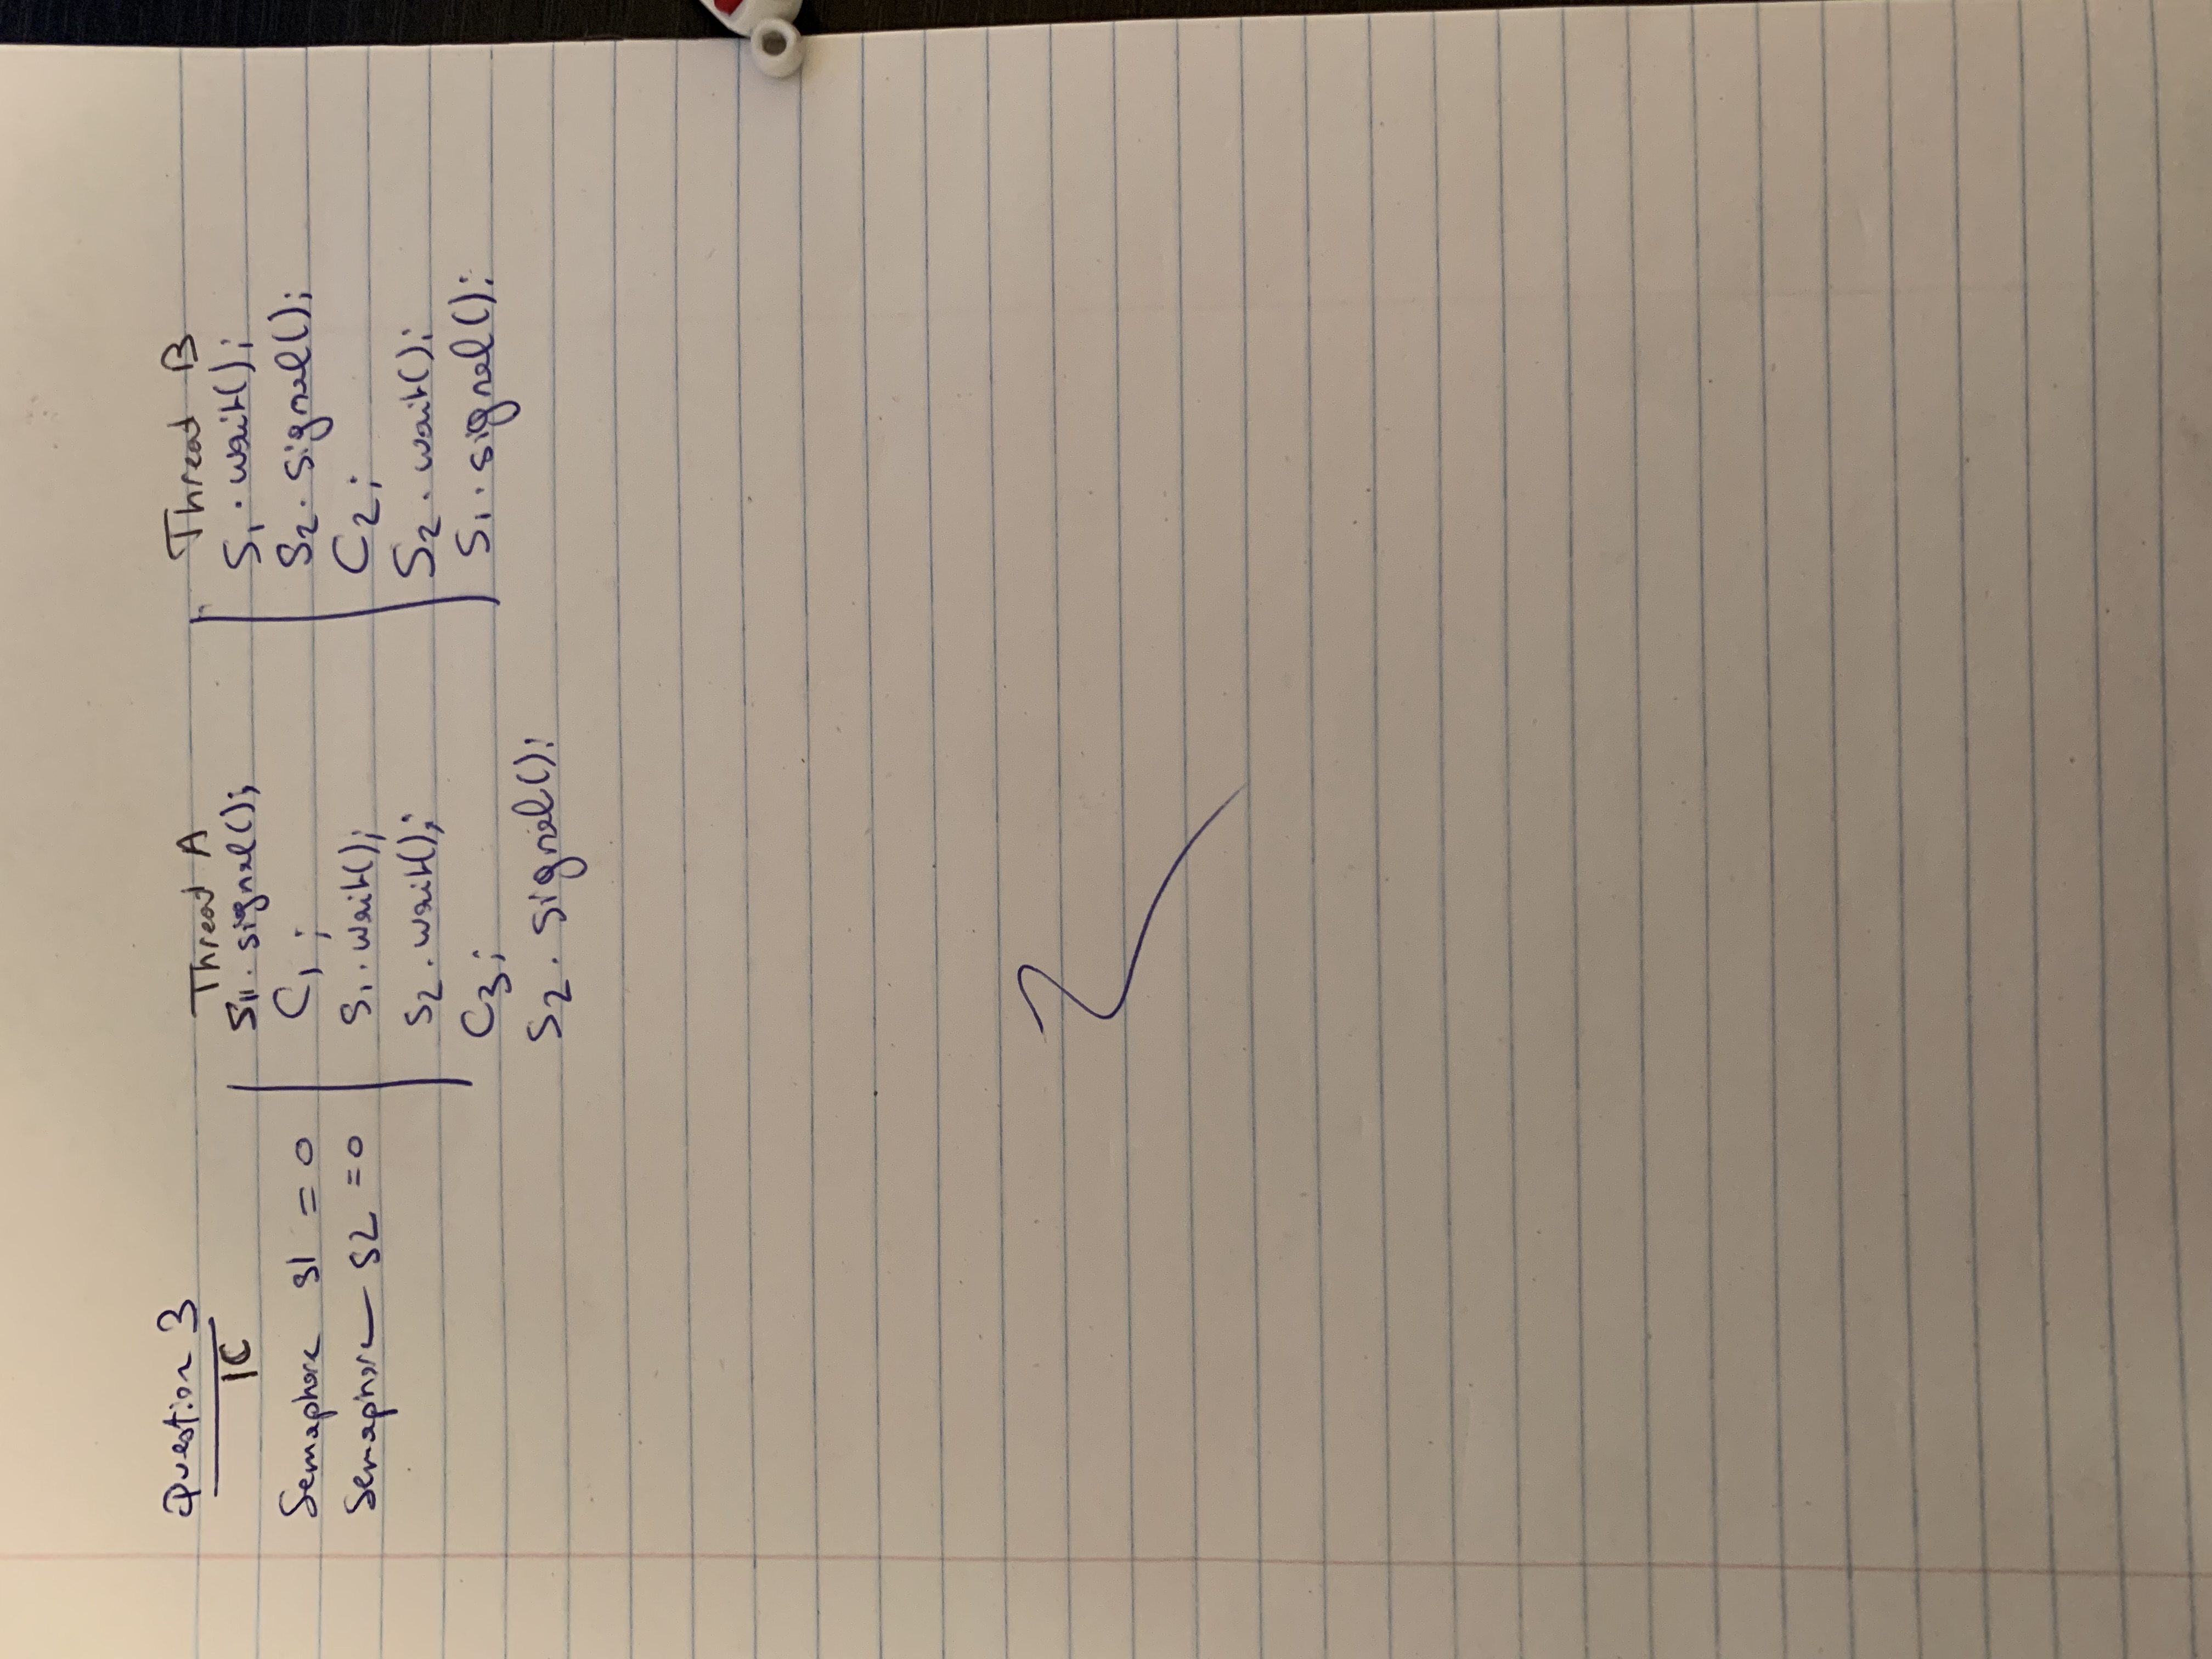 Question 3
1C
Semaphore S1 = 0
Semaphore S2 = 0
Thread A
S1.signal();
C1;
S1.wait();
S2.wait();
C3;
S2.signal();
Thread B
S1.wait();
S2.signal();
C2;
S2.wait();
S1.signal();